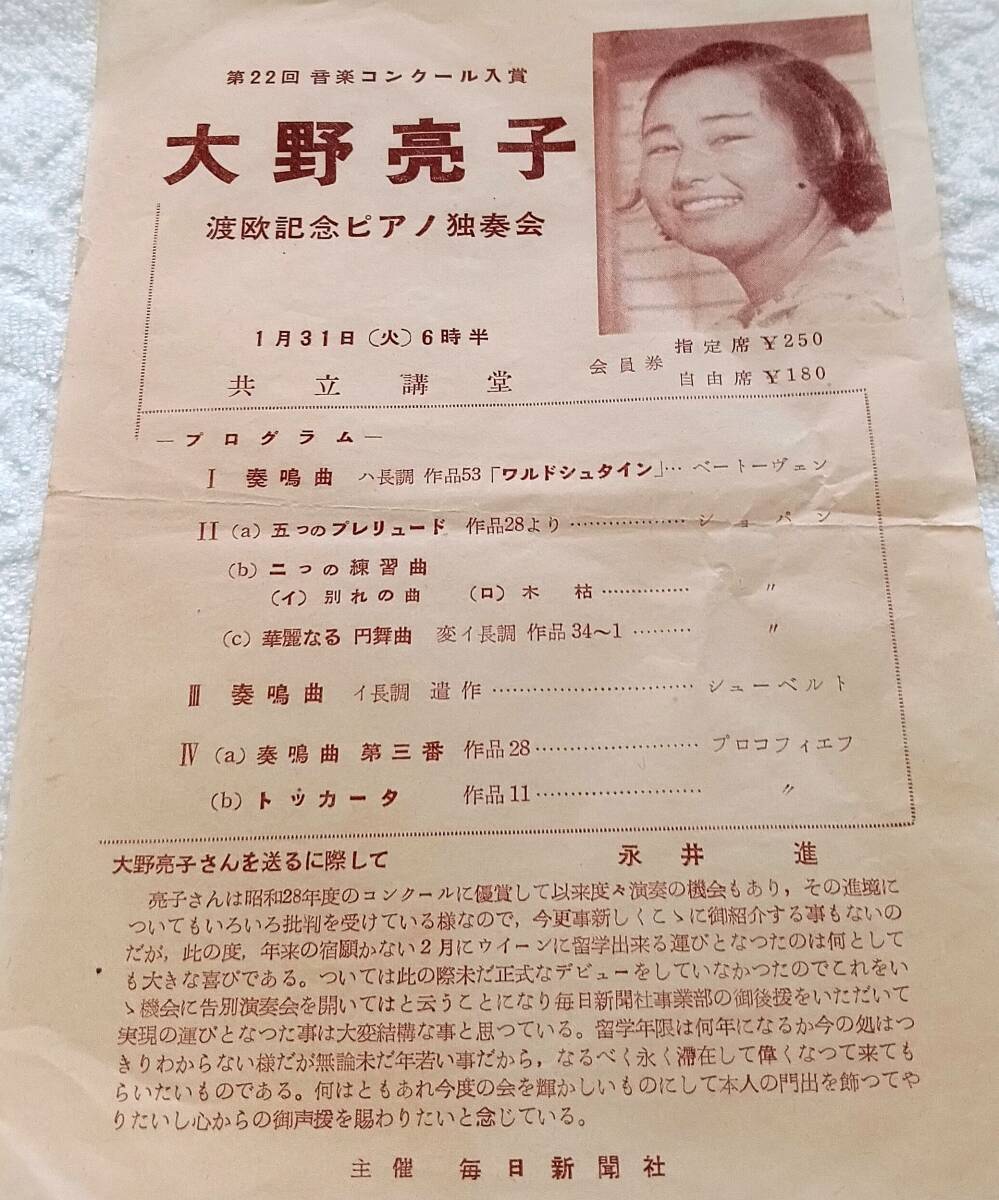 第22回 音楽コンクール入賞
大野亮子
渡欧記念ピアノ独奏会
1月31日(火)6時半
共立講堂
会員券 指定席¥250
自由席¥180
―プログラム―
I 奏鳴曲 ハ長調 作品53「ワルドシュタイン」… ベートーヴェン
II (a) 五つのプレリュード 作品28より……………… ショパン
(b) 二つの練習曲
(イ) 別れの曲 (ロ) 木枯…………… 〃
(c) 華麗なる 円舞曲 変イ長調 作品34〜1 ……… 〃
III 奏鳴曲 イ長調 遺作 ………………………… シューベルト
IV (a) 奏鳴曲 第三番 作品28…………………… プロコフィエフ
(b) トッカータ 作品11…………………… 〃
大野亮子さんを送るに際して 永井 進
亮子さんは昭和28年度のコンクールに優賞して以来度々演奏の機会もあり，その進境に
ついてもいろいろ批判を受けている様なので，今更事新しくこゝに御紹介する事もないの
だが，此の度，年来の宿願かない2月にウイーンに留学出来る運びとなつたのは何として
も大きな喜びである。ついては此の際未だ正式なデビューをしていなかつたのでこれをい
ゝ機会に告別演奏会を開いてはと云うことになり毎日新聞社事業部の御後援をいただいて
実現の運びとなつた事は大変結構な事と思つている。留学年限は何年になるか今の処はつ
きりわからない様だが無論未だ年若い事だから，なるべく永く滞在して偉くなつて来ても
らいたいものである。何はともあれ今度の会を輝かしいものにして本人の門出を飾つてや
りたいし心からの御声援を賜わりたいと念じている。
主催 毎日新聞社